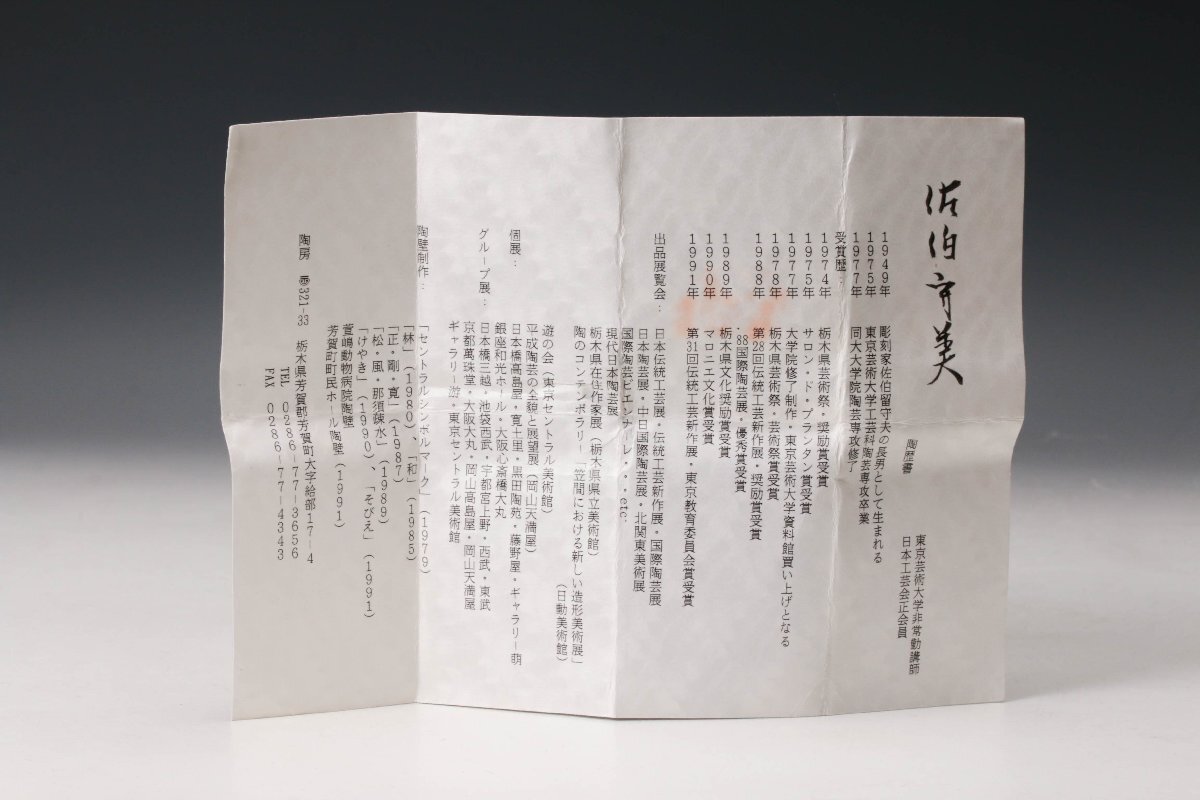 佐伯守美
陶歴書
東京芸術大学非常勤講師
日本工芸会正会員
1949年 彫刻家佐伯留守夫の長男として生まれる
1975年 東京芸術大学工芸科陶芸専攻卒業
1977年 同大大学院陶芸専攻修了
受賞歴:
1974年 栃木県芸術祭・奨励賞受賞
1975年 サロン・ド・プランタン賞受賞
1977年 大学院修了制作・東京芸術大学資料館買い上げとなる
1978年 栃木県芸術祭・芸術祭賞受賞
1988年 第28回伝統工芸新作展・奨励賞受賞
'88国際陶芸展・優秀賞受賞
1989年 栃木県文化奨励賞受賞
1990年 マロニエ文化賞受賞
1991年 第31回伝統工芸新作展・東京教育委員会賞受賞
出品展覧会: 日本伝統工芸展・伝統工芸新作展・国際陶芸展
日本陶芸展・中日国際陶芸展・北関東美術展
国際陶芸ビエンナーレ・・・etc.
現代日本陶芸展
栃木県在住作家展(栃木県県立美術館)
陶のコンテンポラリー「笠間における新しい造形美術展」
(日動美術館)
遊の会(東京セントラル美術館)
平成陶芸の全貌と展望展(岡山天満屋)
個展: 日本橋高島屋・寛土里・黒田陶苑・藤野屋・ギャラリー萌
銀座和光ホール・大阪心斎橋大丸
グループ展: 日本橋三越・池袋西武・宇都宮上野・西武・東武
京都萬珠堂・大阪大丸・岡山高島屋・岡山天満屋
ギャラリー游・東京セントラル美術館
陶壁制作: 「セントラルシンボルマーク」(1979)
「林」(1980)、「和」(1985)
「正・剛・寛」(1987)
「松・風・那須疎水」(1989)
「けやき」(1990)、「そびえ」(1991)
菅嶋動物病院陶壁
芳賀町町民ホール陶壁(1991)
陶房 〠321-33 栃木県芳賀郡芳賀町大字給部17-4
TEL 0286-77-3656
FAX 0286-77-4343